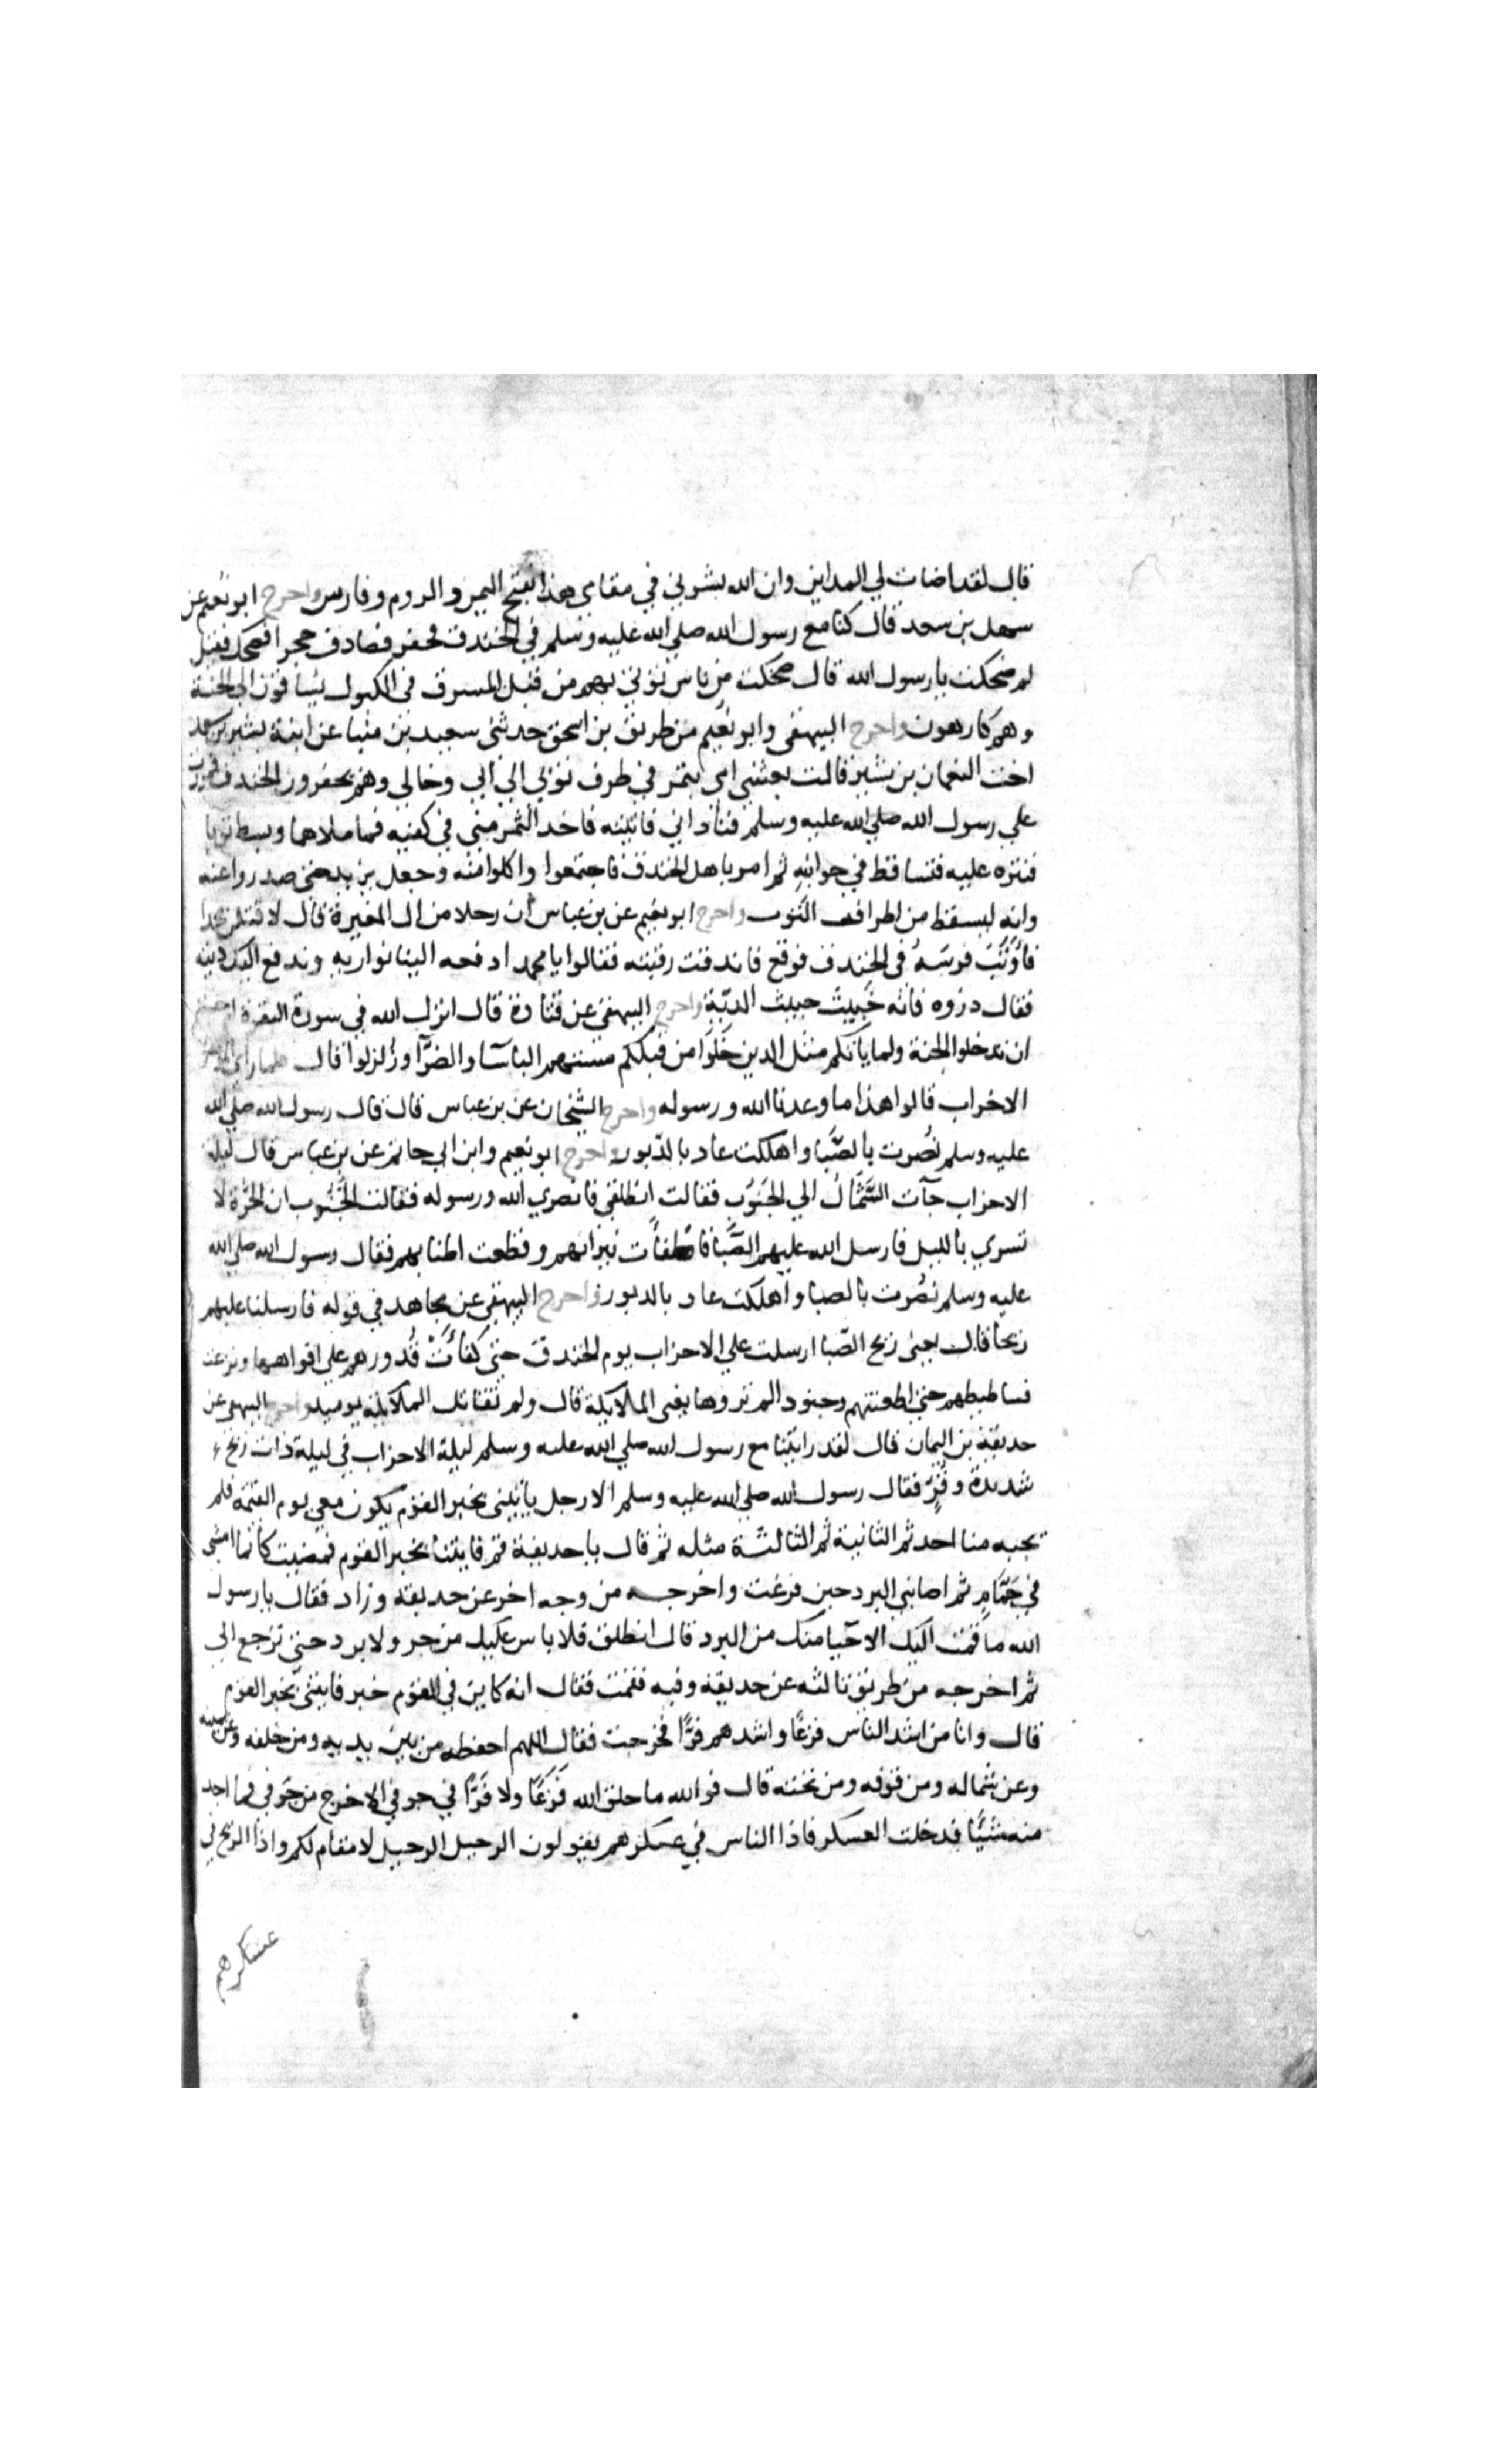 قال لقد اضات لي المداين وان الله بشرني في مقامي هذا بفتح اليمن والروم وفارس واخرج ابو نعيم عن
سهل بن سعد قال كنا مع رسول الله صلي الله عليه وسلم في الخندق فحفر فصادف حجرا فضحك فقيل
لم ضحكت يا رسول الله قال ضحكت من ناس يؤتي بهم من قبل المشرق في الكبول يساقون الي الجنة
وهم كارهون واخرج البيهقي وابو نعيم من طريق بن اسحق حدثني سعيد بن مينا عن ابنة بشير بن سعد
اخت النعمان بن بشير قالت بعثتني امي بتمر في طرف ثوبي الي ابي وخالي وهم يحفرون الخندق فمررت
علي رسول الله صلي الله عليه وسلم فناداني فاتيته فاخذ التمر مني في كفيه فما ملاها وبسط ثوبا
فنثره عليه فتساقط في جوانبه ثم امر باهل الخندق فاجتمعوا واكلوا منه وجعل يزيد حتي صدروا عنه
وانه ليسقط من اطراف الثوب واخرج ابو نعيم عن بن عباس ان رجلا من ال المغيرة قال لاقتلن محمدا
فاوثب فرسه في الخندق فوقع فاندقت رقبته فقالوا يا محمد ادفعه الينا نواريه وندفع اليك ديته
فقال ذروه فانه خبيث خبيث الدية واخرج البيهقي عن قتادة قال انزل الله في سورة البقرة ام حسبتم
ان تدخلوا الجنة ولما ياتكم مثل الذين خلوا من قبلكم مستهم الباسا والضرا وزلزلوا قال فلما راي المومنون
الاحزاب قالوا هذا ما وعدنا الله ورسوله واخرج الشيخان عن بن عباس قال قال رسول الله صلي الله
عليه وسلم نصرت بالصبا واهلكت عاد بالدبور واخرج ابو نعيم وابن ابي حاتم عن بن عباس قال ليلة
الاحزاب جآت الشمال الي الجنوب فقالت انطلقي فانصري الله ورسوله فقالت الجنوب ان الحرة لا
تسري بالليل فارسل الله عليهم الصبا فاطفات نيرانهم وقطعت اطنابهم فقال رسول الله صلي الله
عليه وسلم نصرت بالصبا واهلكت عاد بالدبور واخرج البيهقي عن مجاهد في قوله فارسلنا عليهم
ريحا قال يعني ريح الصبا ارسلت علي الاحزاب يوم الخندق حتي كفات قدورهم علي افواهها ونزعت
فساطيطهم حتي اظعنتهم وجنود الم تروها يعني الملايكة قال ولم تقاتل الملايكة يوميذ واخرج البيهقي عن
حذيفة بن اليمان قال لقد رايتنا مع رسول الله صلي الله عليه وسلم ليلة الاحزاب في ليلة ذات ريح
شديدة وقر فقال رسول الله صلي الله عليه وسلم الا رجل ياتيني بخبر القوم يكون معي يوم القيمة فلم
يجبه منا احد ثم الثانية ثم الثالثة مثله ثم قال يا حذيفة قم فايتنا بخبر القوم فمضيت كانما امشي
في حمام ثم اصابني البرد حين فرغت واخرجه من وجه اخر عن حذيفة وزاد فقال يا رسول
الله ما قمت اليك الا حيا منك من البرد قال انطلق فلا باس عليك من حر ولا برد حتي ترجع الي
ثم اخرجه من طريق ثالثه عن حذيفة وفيه فقمت فقال انه كاين في القوم خبر فايتني بخبر القوم
قال وانا من اشد الناس فزعا واشدهم قرا فخرجت فقال اللهم احفظه من بين يديه ومن خلفه وعن يمينه
وعن شماله ومن فوقه ومن تحته قال فوالله ما خلق الله فزعا ولا قرا في جوفي الا خرج من جوفي فما اجد
منه شيئا فدخلت العسكر فاذا الناس في عسكرهم يقولون الرحيل الرحيل لا مقام لكم واذا الريح في
عسكرهم